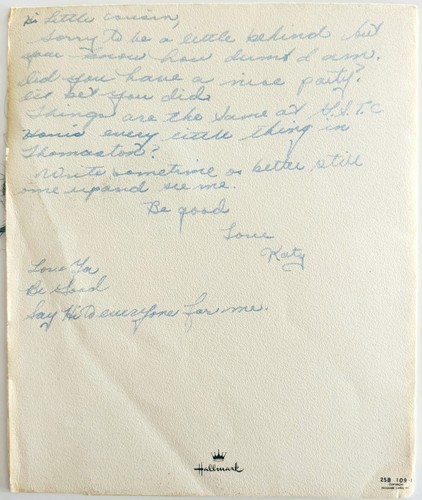 Hi Little Cousin,
Sorry to be a little behind but
you know how dumb I am.
Did you have a nice party?
I'll bet you did.
Things are the same at G.S.T.C
Hows every little thing in
Thomaston?
Write sometime or better still
ome up and see me.
Be good
Love
Katy
Love Ya
Be Good
Say Hi to everyone for me.
Hallmark
25B 109